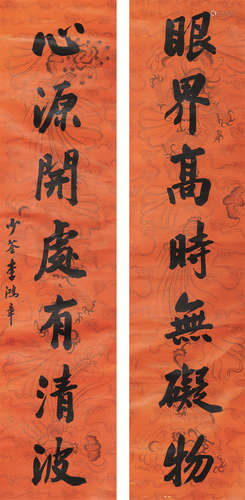 眼界高時無礙物
心源開處有清波
少荃李鴻章